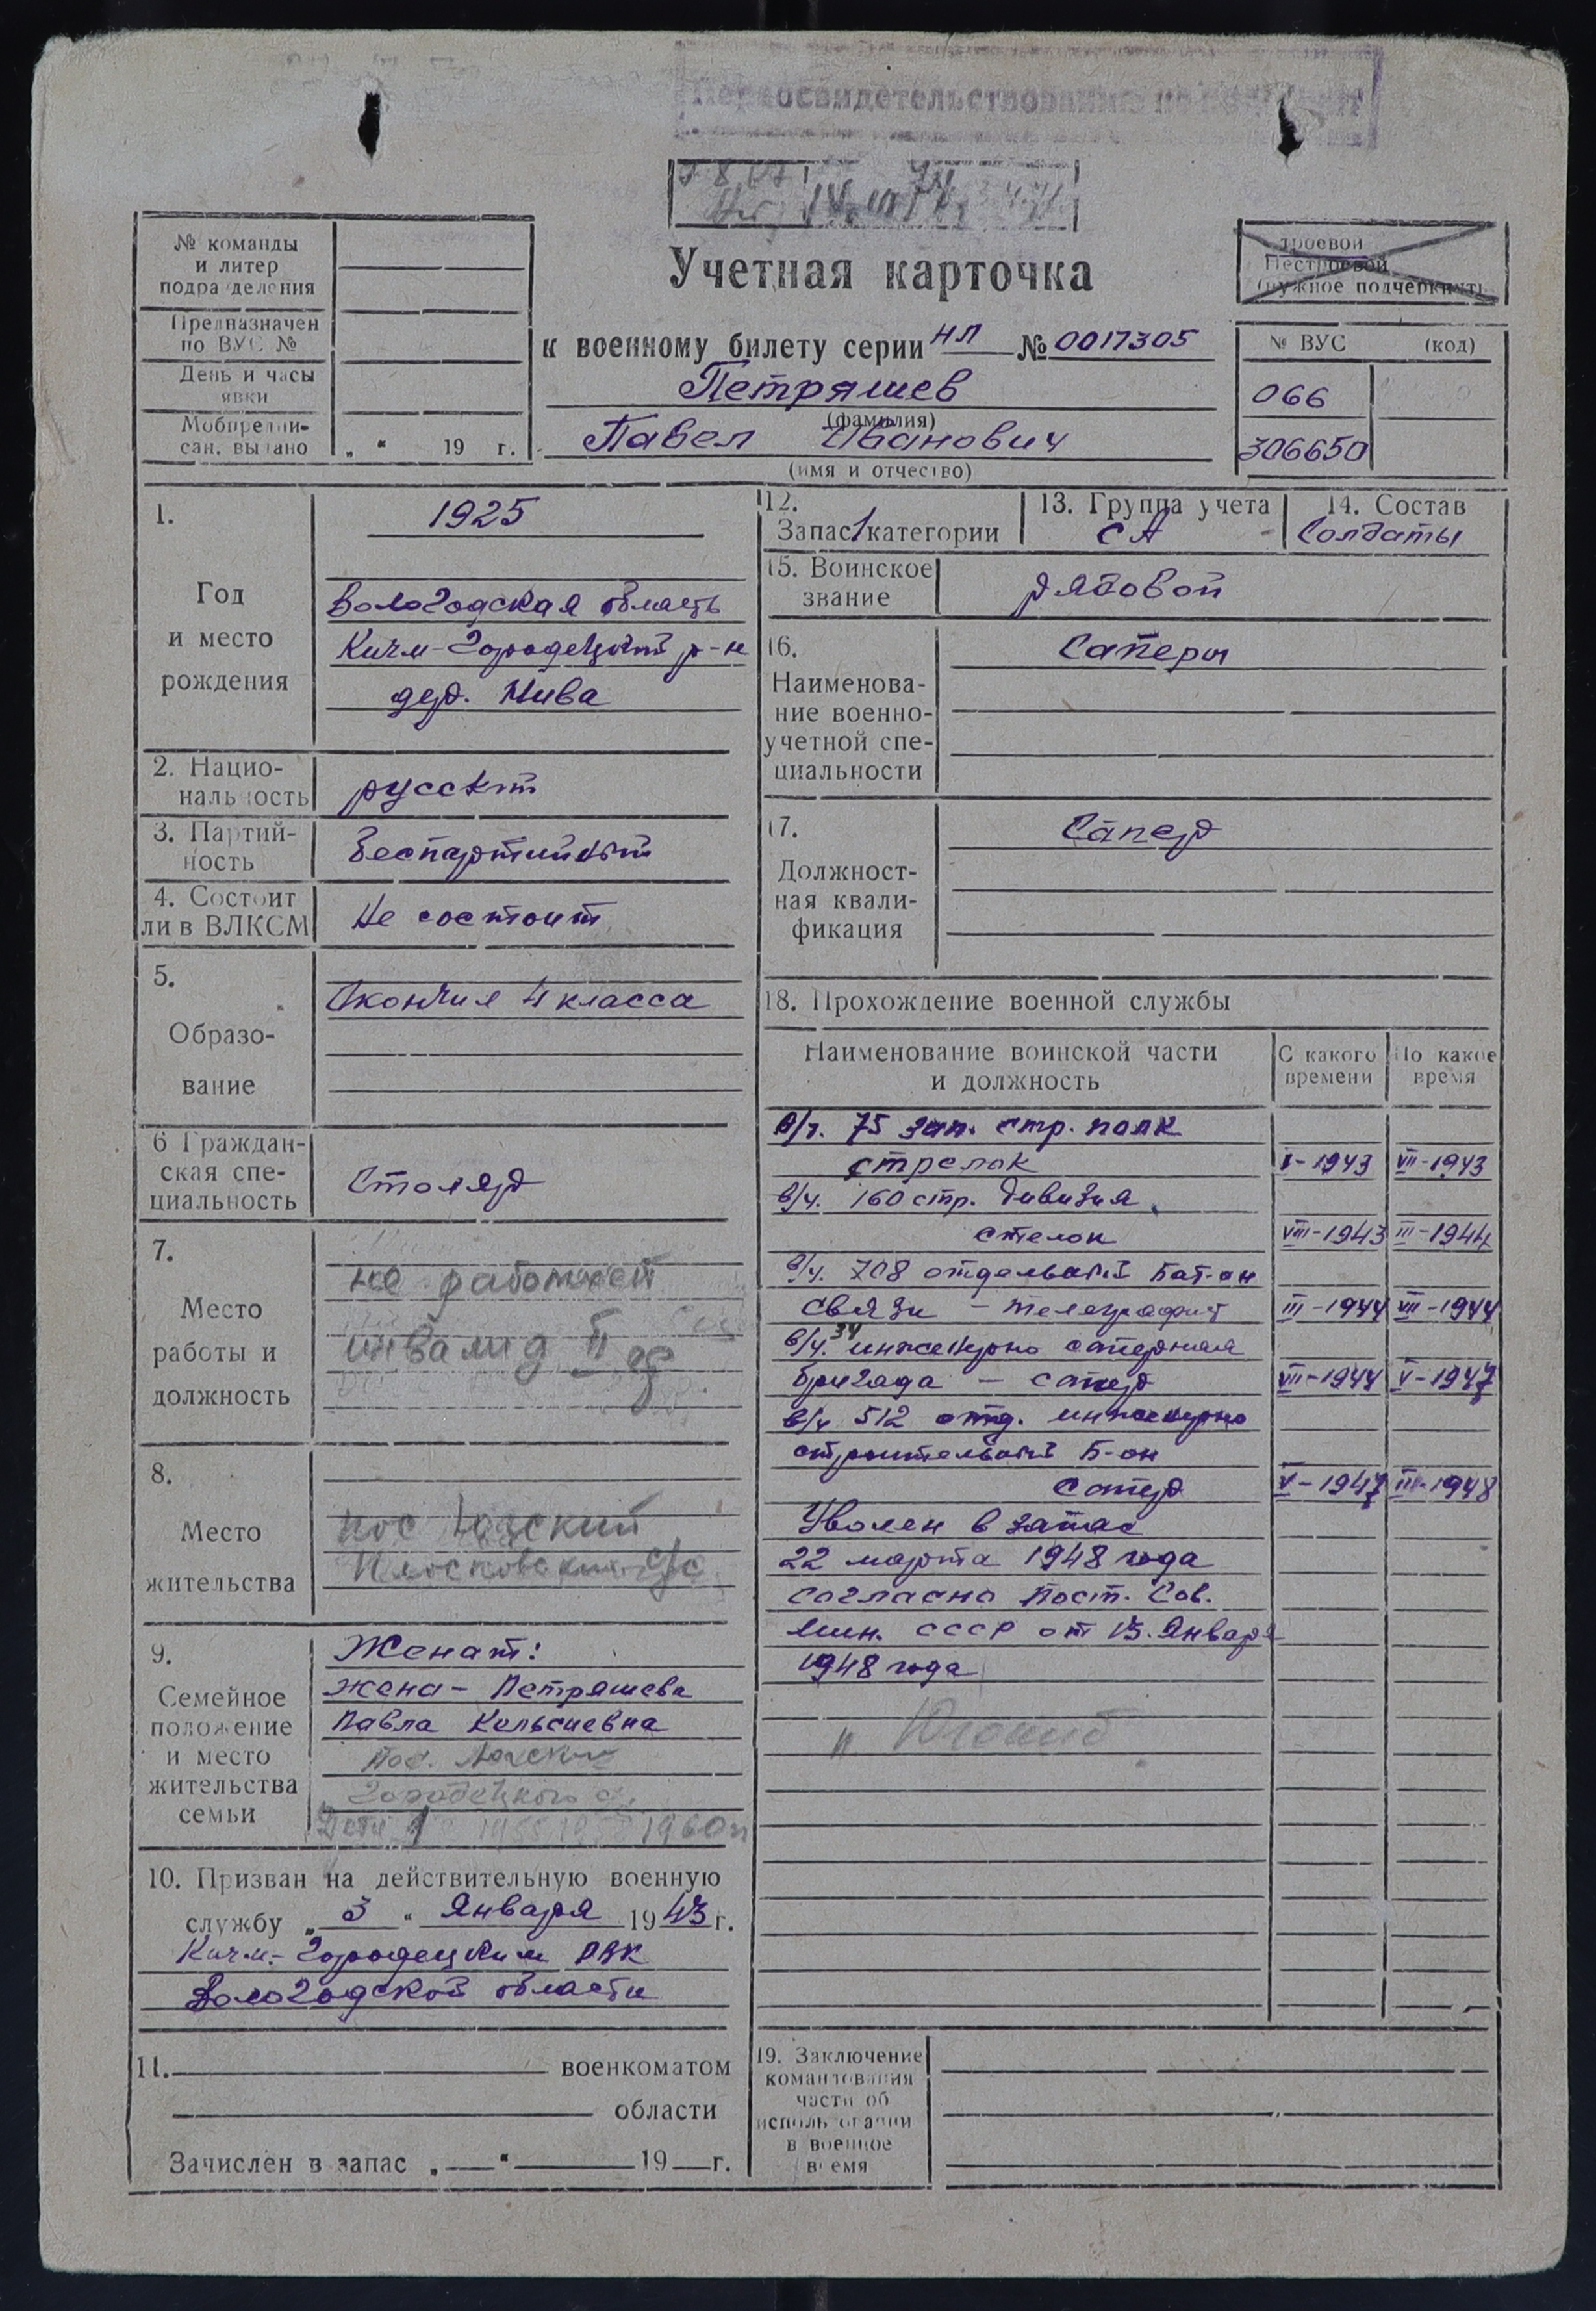 Переосвидетельствование
Учетная карточка
к военному билету серии НЛ № 0017305
Петряшев
(фамилия)
Павел Иванович
(имя и отчество)
№ команды
и литер
подразделения
Предназначен
по ВУС №
День и часы
явки
Мобпредпи-
сан. выдано „ “ 19 г.
Строевой
Нестроевой
(нужное подчеркнуть
№ ВУС (код)
066
306650
1.
Год
и место
рождения
1925
Вологодская область
Кичм-Городецкий р-н
дер. Нива
2. Нацио-
нальность
русский
3. Партий-
ность
Беспартийный
4. Состоит
ли в ВЛКСМ
Не состоит
5.
Образо-
вание
Окончил 4 класса
6 Граждан-
ская спе-
циальность
Столяр
7.
Место
работы и
должность
не работает
инвалид II гр
8.
Место
жительства
пос
9.
Семейное
положение
и место
жительства
семьи
Женат:
жена - Петряшева
Павла Кельсиевна
пос.
Городецкого
Дети 1 1960
10. Призван на действительную военную
службу „ 3 “ Января 1943 г.
Кичм.-Городецким РВК
Вологодской области
11. военкоматом
области
Зачислен в запас „ “ 19 г.
12.
Запас 1 категории
13. Группа учета
СА
14. Состав
Солдаты
15. Воинское
звание
рядовой
16.
Наименова-
ние военно-
учетной спе-
циальности
Саперы
17.
Должност-
ная квали-
фикация
Сапер
18. Прохождение военной службы
Наименование воинской части
и должность
С какого
времени
По какое
время
в/ч. 75 зап. стр. полк
стрелок I-1943 VII-1943
в/ч. 160 стр. дивизия
стелок VIII-1943 III-1944
в/ч. 708 отдельный Бат-он
связи - телеграфист III-1944 VII-1944
в/ч. 34 инженерно саперная
бригада - сапер VII-1944 V-1947
в/ч 512 отд. инженерно
строительный Б-он
сапер V-1947 III-1948
Уволен в запас
22 марта 1948 года
согласно Пост. Сов.
Мин. СССР от 13. Января
1948 года
19. Заключение
командования
части об
использовании
в военное
время